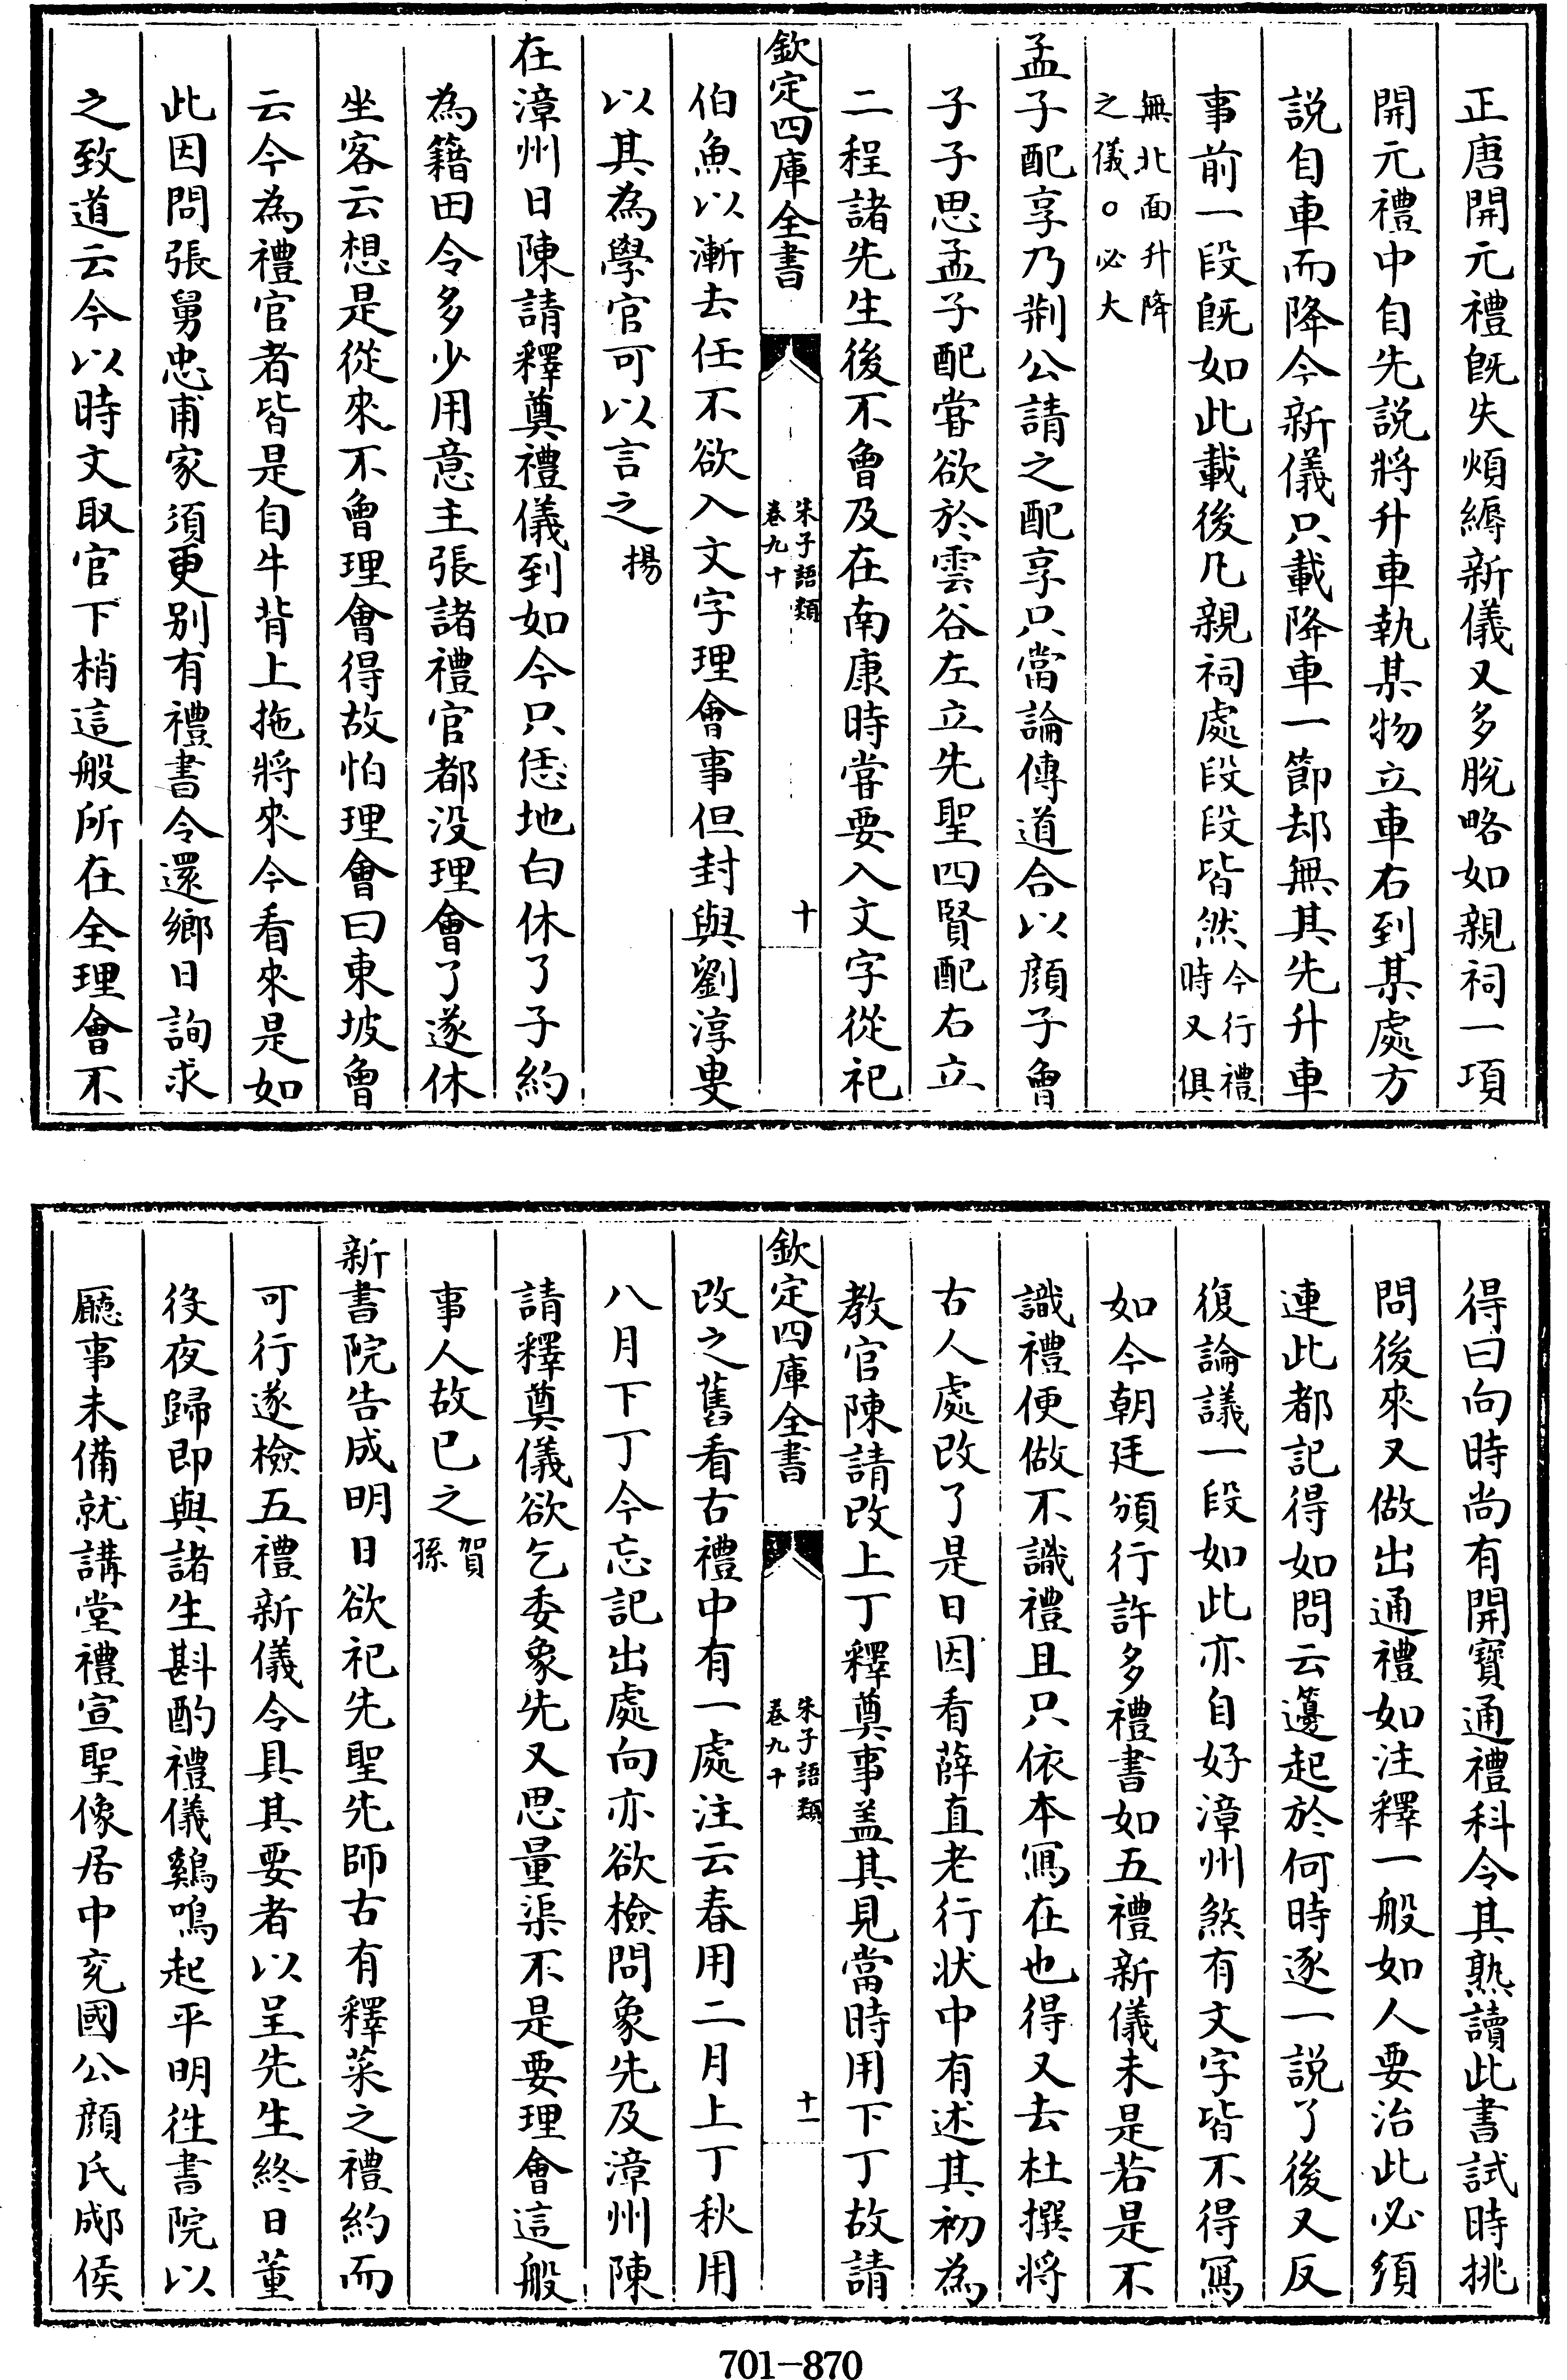 正唐開元禮既失煩縟新儀又多脱略如親祠一項
開元禮中自先説將升車執某物立車右到某處方
説自車而降今新儀只載降車一節却無其先升車
事前一段既如此載後凡親祠處段段皆然今行禮時又俱
無北面升降之儀○必大
孟子配享乃荆公請之配享只當論傳道合以顔子曾
子子思孟子配甞欲於雲谷左立先聖四賢配右立
二程諸先生後不曾及在南康時甞要入文字從祀
欽定四庫全書
朱子語類
卷九十
十
伯魚以漸去任不欲入文字理會事但封與劉淳叟
以其為學官可以言之揚
在漳州日陳請釋奠禮儀到如今只恁地白休了子約
為籍田令多少用意主張諸禮官都没理會了遂休
坐客云想是從來不曾理會得故怕理會曰東坡曾
云今為禮官者皆是自牛背上拖將來今看來是如
此因問張舅忠甫家須更别有禮書令還鄉日詢求
之致道云今以時文取官下梢這般所在全理會不
得曰向時尚有開寶通禮科令其熟讀此書試時挑
問後來又做出通禮如注釋一般如人要治此必須
連此都記得如問云籩起於何時逐一説了後又反
復論議一段如此亦自好漳州煞有文字皆不得寫
如今朝廷頒行許多禮書如五禮新儀未是若是不
識禮便做不識禮且只依本寫在也得又去杜撰將
古人處改了是日因看薛直老行状中有述其初為
教官陳請改上丁釋奠事盖其見當時用下丁故請
欽定四庫全書
朱子語類
卷九十
十一
改之舊看古禮中有一處注云春用二月上丁秋用
八月下丁今忘記出處向亦欲檢問象先及漳州陳
請釋奠儀欲乞委象先又思量渠不是要理會這般
事人故已之賀孫
新書院告成明日欲祀先聖先師古有釋菜之禮約而
可行遂檢五禮新儀令具其要者以呈先生終日董
役夜歸即與諸生斟酌禮儀鷄鳴起平明徃書院以
廳事未備就講堂禮宣聖像居中兖國公顔氏郕侯
701—870